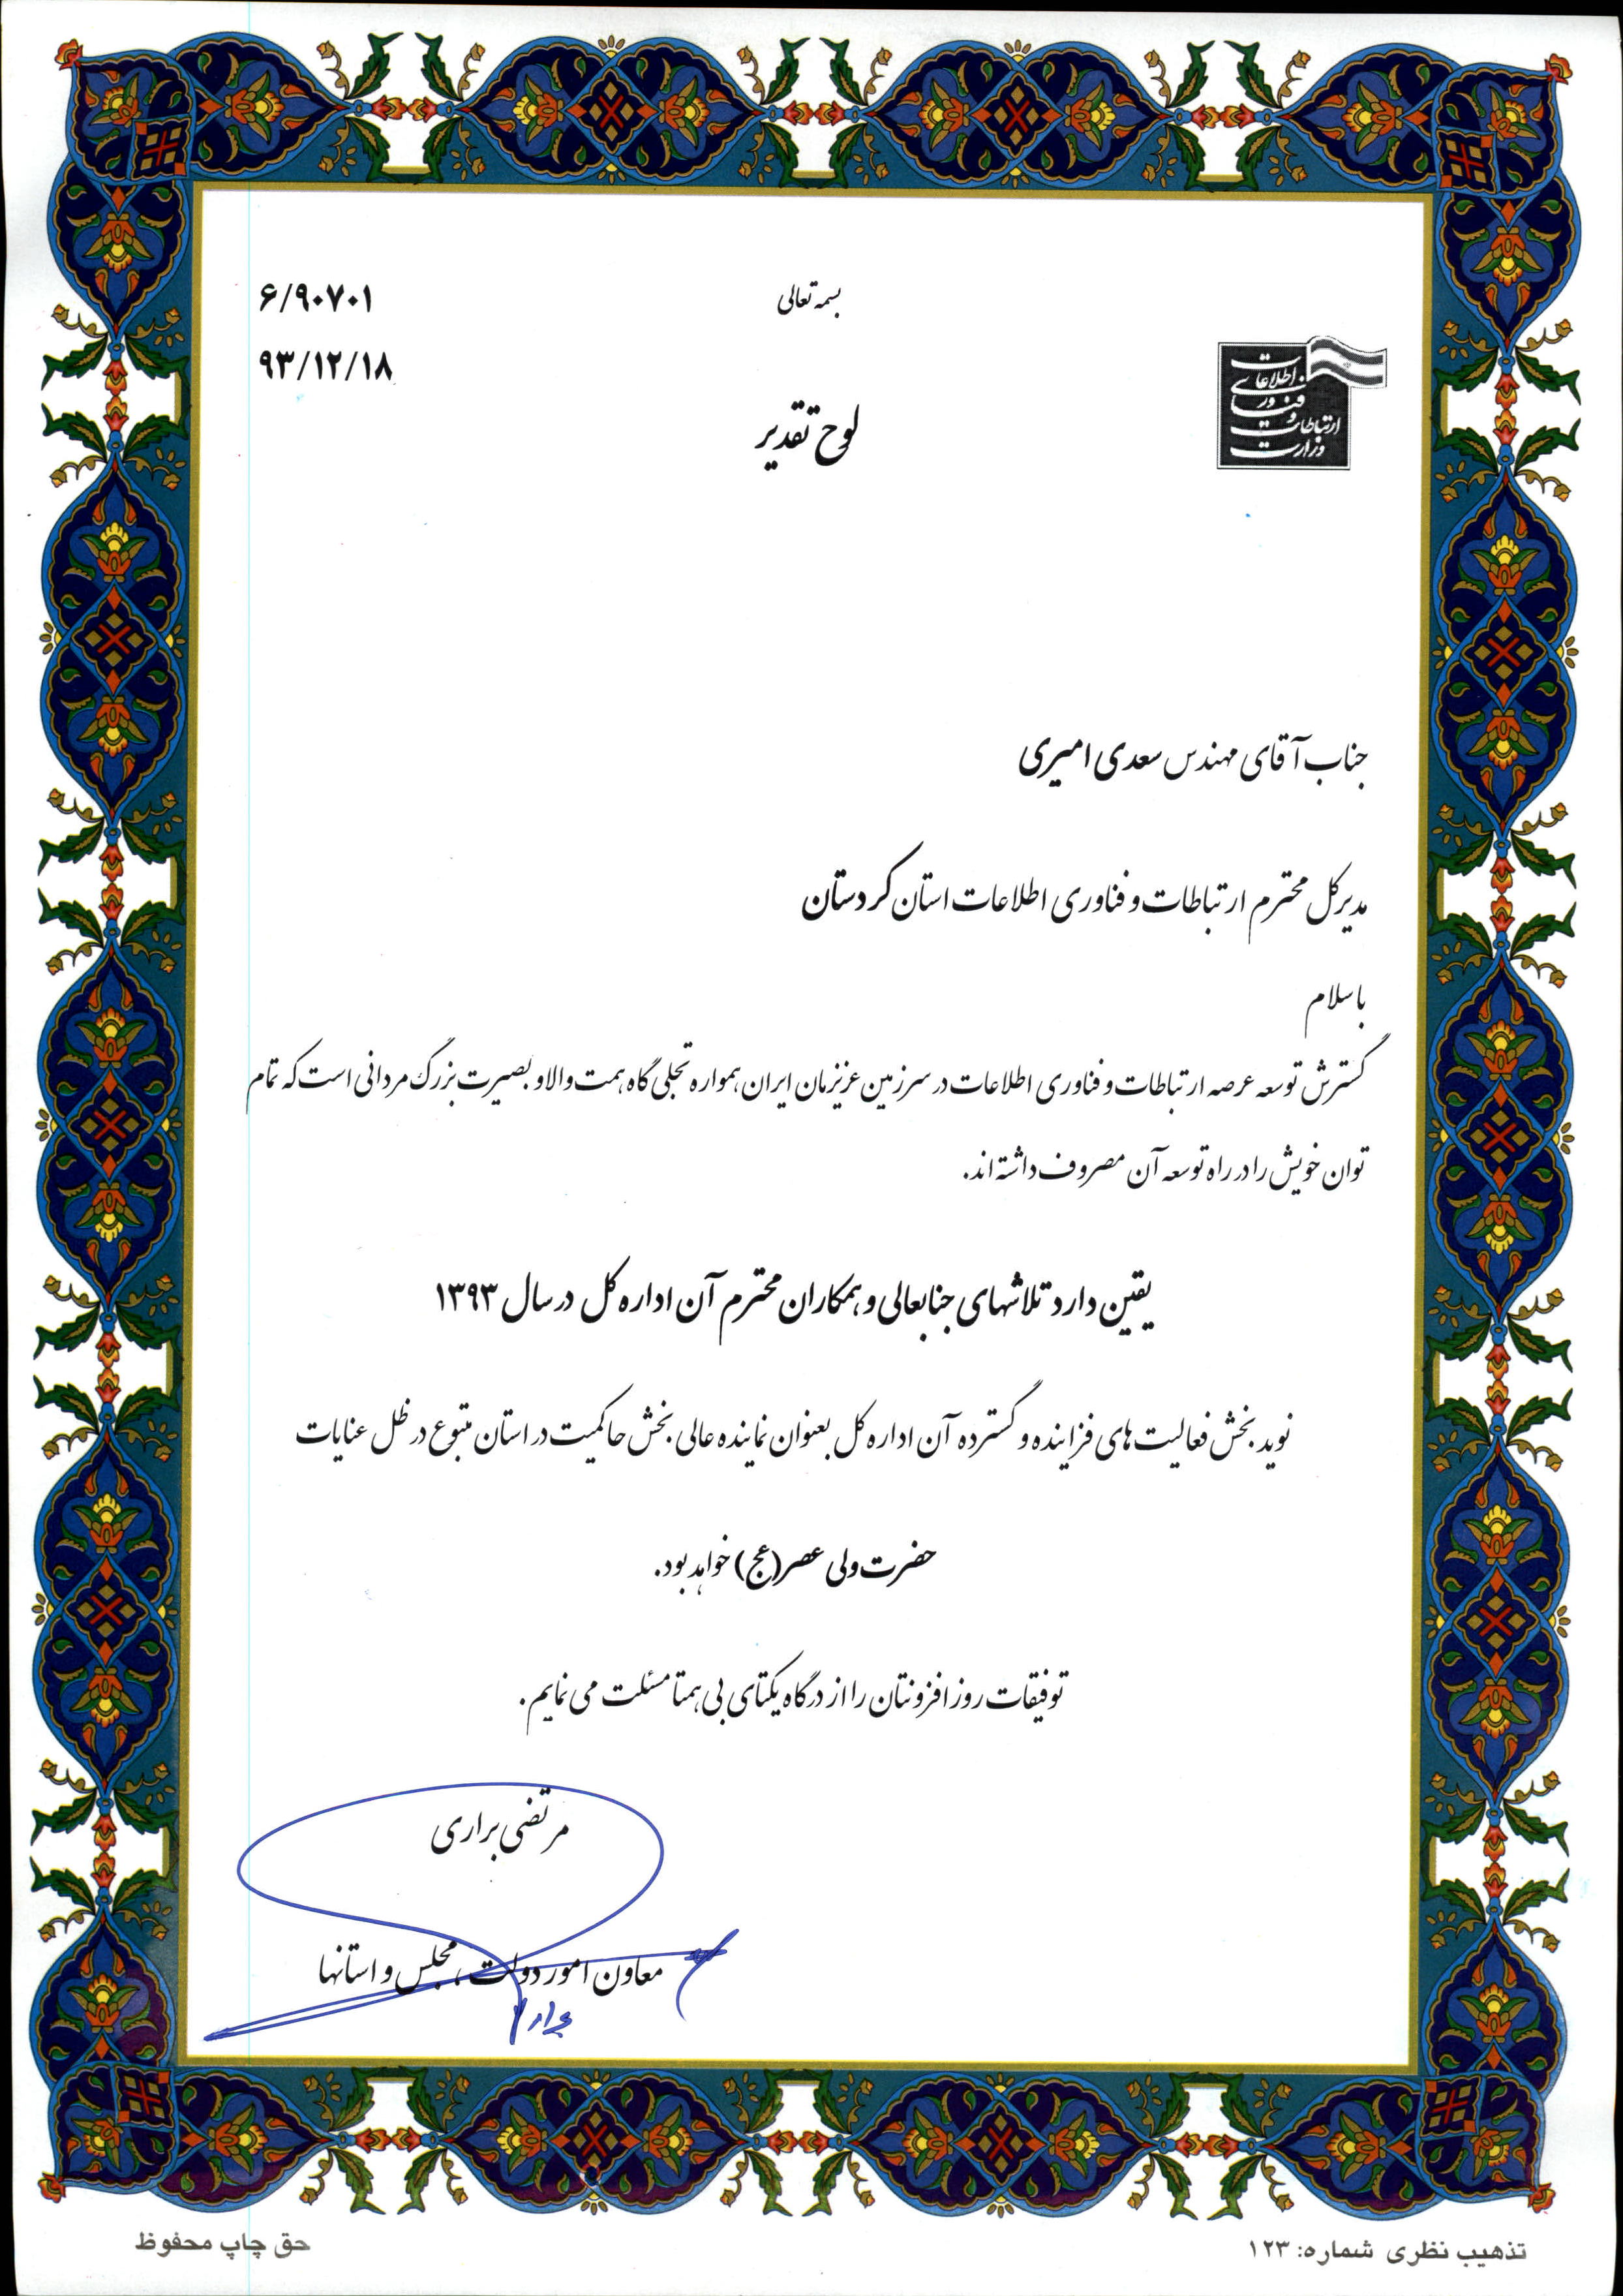 بسمه تعالی
۶/۹۰۷۰۱
۹۳/۱۲/۱۸
وزارت ارتباطات و فناوری اطلاعات
لوح تقدیر
جناب آقای مهندس سعدی امیری
مدیرکل محترم ارتباطات و فناوری اطلاعات استان کردستان
با سلام
گسترش توسعه عرصه ارتباطات و فناوری اطلاعات در سرزمین عزیزمان ایران همواره تجلی گاه همت والا و بصیرت بزرگ مردانی است که تمام
توان خویش را در راه توسعه آن مصروف داشته اند.
یقین دارد تلاشهای جنابعالی و همکاران محترم آن اداره کل در سال ۱۳۹۳
نوید بخش فعالیت های فزاینده و گسترده آن اداره کل بعنوان نماینده عالی بخش حاکمیت در استان متبوع در ظل عنایات
حضرت ولی عصر(عج) خواهد بود.
توفیقات روز افزونتان را از درگاه یکتای بی همتا مسئلت می نمایم.
مرتضی براری
معاون امور دولت، مجلس و استانها
تذهیب نظری شماره: ۱۲۳
حق چاپ محفوظ